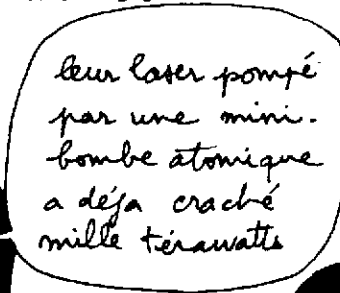 leur laser pompé
par une mini-
bombe atomique
a déja craché
mille térawatts